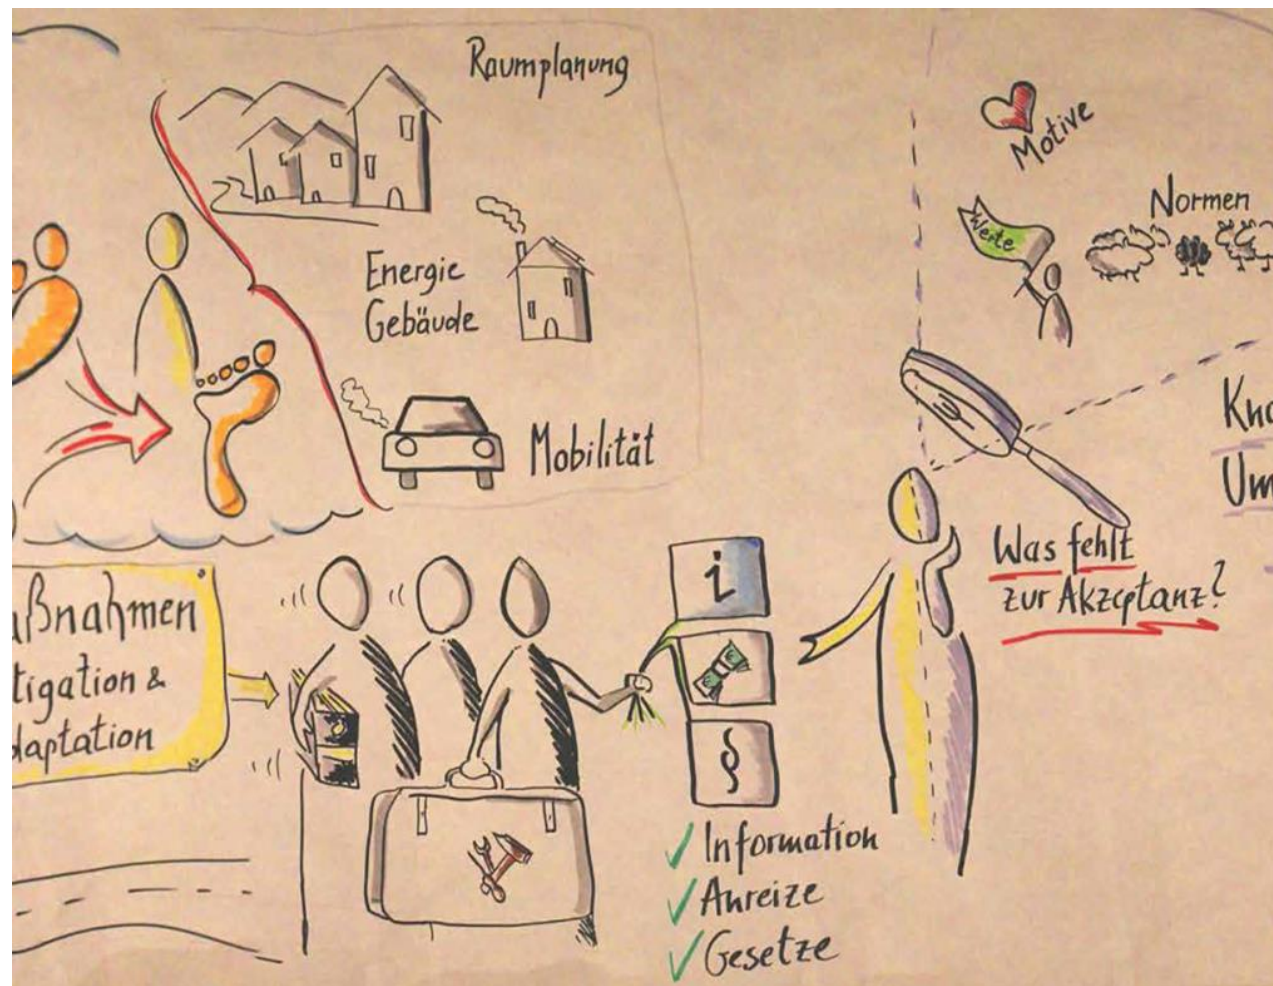 Raumplanung
Energie
Gebäude
Mobilität
Motive
Werte
Normen
Was fehlt
zur Akzeptanz?
ßnahmen
tigation &
daptation
i
§
Information
Anreize
Gesetze